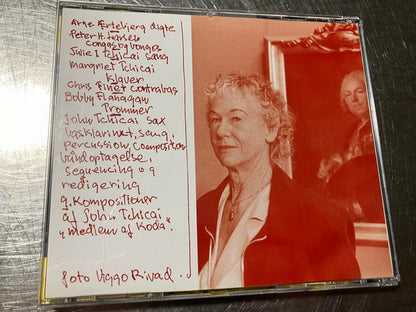 Arne Hertebjerg digte
Peter H. Larsen
congas og bongos
Julie I Tchicai sang
Margriet Tchicai
klaver
Chris Finet contrabas
Bobby Flanagan
trommer
John Tchicai sax
basklarinet, sang,
percussion, composition
båndoptagelse,
sequencing og
redigering
9. Kompositioner
af John Tchicai
"medlem af Koda".
foto Viggo Rivad..